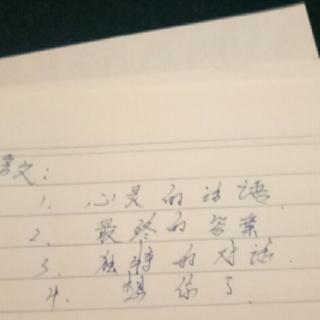 文：
1. 心灵的话语
2. 最终的答案
3. 独特的对话.
4. 想你了